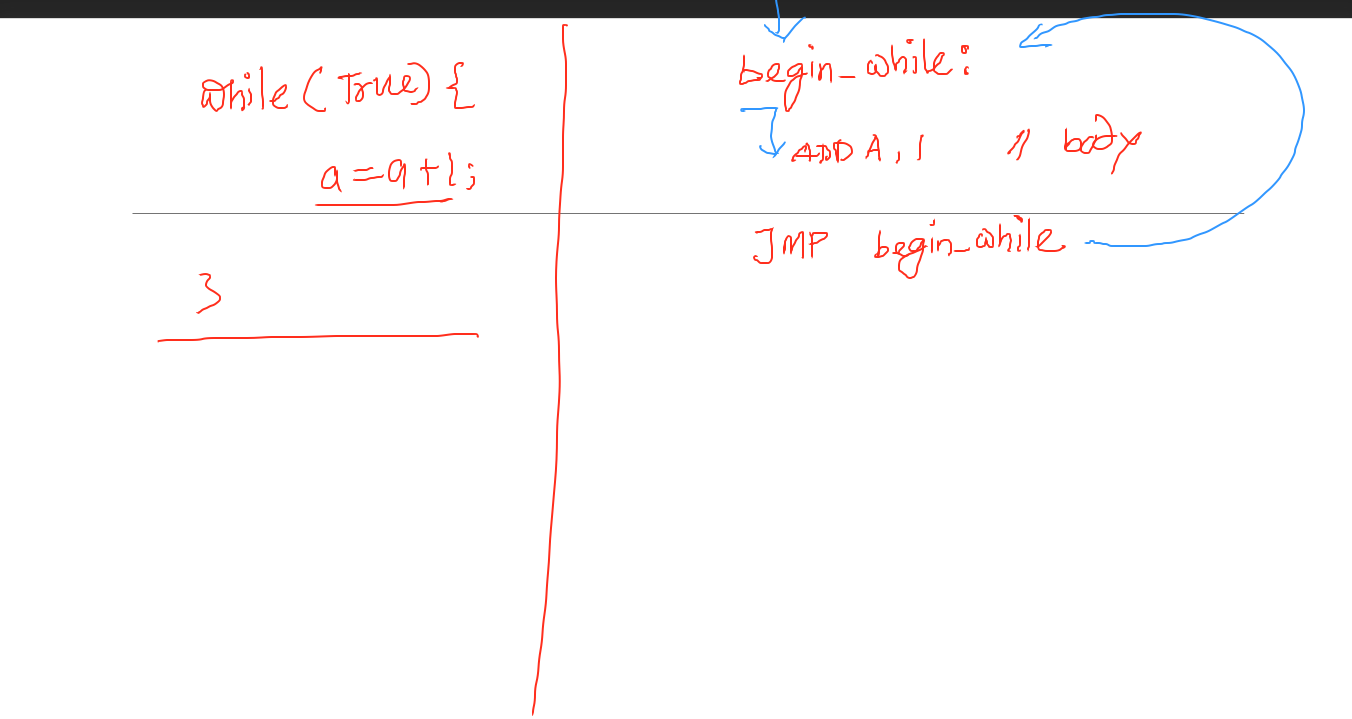 while (True) {
a = a + 1;
}
begin_while:
ADD A, 1 // body
JMP begin_while